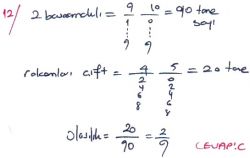 12/ 2 basamaklı = 9 10 = 90 tane sayı
1 0
⋮ ⋮
9 9
rakamları çift = 4 5 = 20 tane
2 0
4 2
6 4
8 6
8
Olasılık = 20/90 = 2/9
CEVAP: C